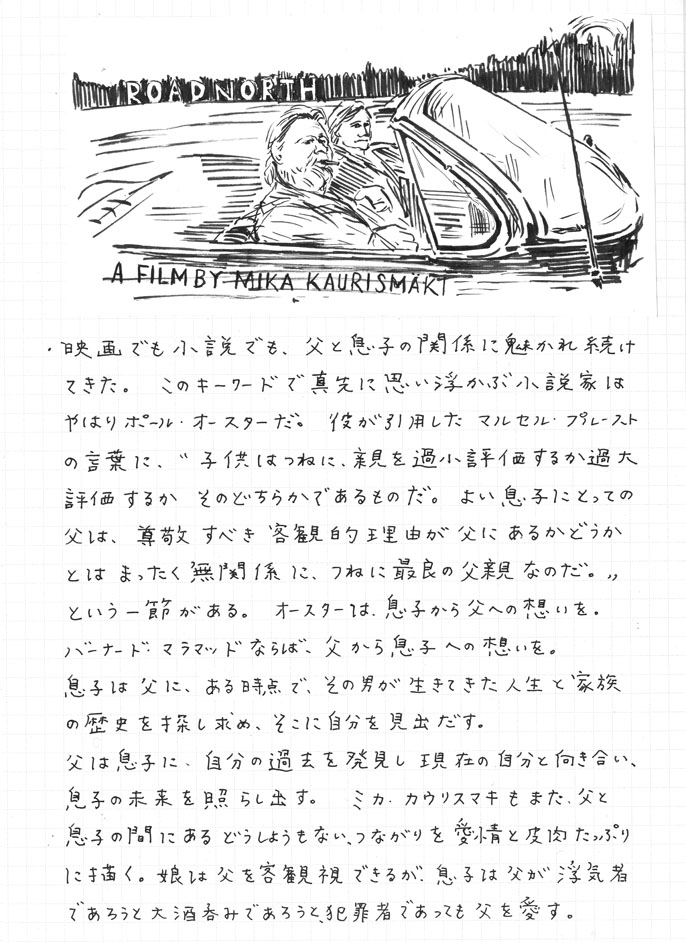 ROAD NORTH
A FILM BY MIKA KAURISMÄKI
・映画でも小説でも、父と息子の関係に魅かれ続け
てきた。 このキーワードで真先に思い浮かぶ小説家は
やはりポール・オースターだ。 彼が引用した マルセル・プルースト
の言葉に、〝子供はつねに、親を過小評価するか過大
評価するか そのどちらかであるものだ。 よい息子にとっての
父は、尊敬すべき客観的理由が父にあるかどうか
とは まったく無関係に、つねに最良の父親なのだ。〟
という一節がある。 オースターは、息子から父への想いを。
バーナード・マラマッドならば、父から息子への想いを。
息子は父に、ある時点で、その男が生きてきた人生と家族
の歴史を探し求め、そこに自分を見出だす。
父は息子に、自分の過去を発見し 現在の自分と向き合い、
息子の未来を照らし出す。 ミカ・カウリスマキもまた、父と
息子の間にあるどうしようもない、つながりを愛情と皮肉たっぷり
に描く。娘は父を客観視できるが、息子は父が浮気者
であろうと大酒呑みであろうと、犯罪者であっても父を愛す。